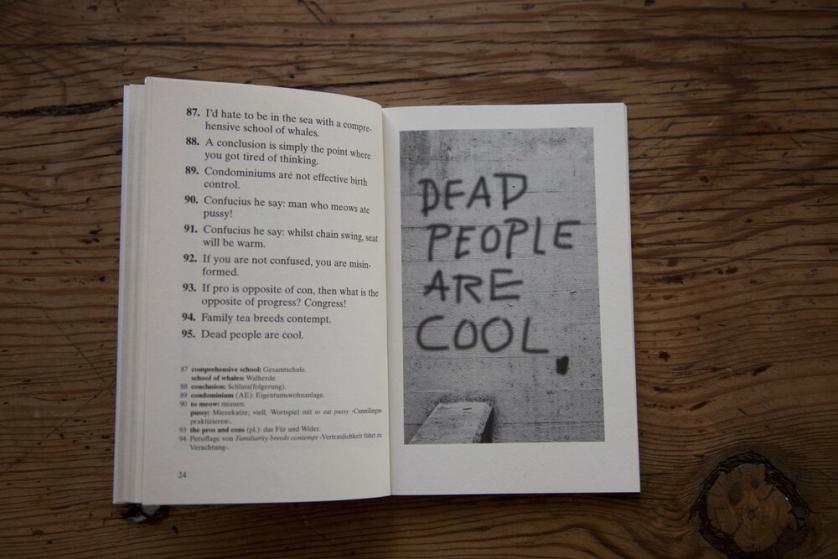 87. I'd hate to be in the sea with a compre-
hensive school of whales.
88. A conclusion is simply the point where
you got tired of thinking.
89. Condominiums are not effective birth
control.
90. Confucius he say: man who meows ate
pussy!
91. Confucius he say: whilst chain swing, seat
will be warm.
92. If you are not confused, you are misin-
formed.
93. If pro is opposite of con, then what is the
opposite of progress? Congress!
94. Family tea breeds contempt.
95. Dead people are cool.
87 comprehensive school: Gesamtschule.
school of whales: Walherde.
88 conclusion: Schluss(folgerung).
89 condominium (AE): Eigentumswohnanlage.
90 to meow: miauen.
pussy: Miezekatze; viell. Wortspiel mit to eat pussy ›Cunnilingus
praktizieren‹.
93 the pros and cons (pl.): das Für und Wider.
94 Persiflage von Familiarity breeds contempt ›Vertraulichkeit führt zu
Verachtung‹.
24
DEAD
PEOPLE
ARE
COOL.